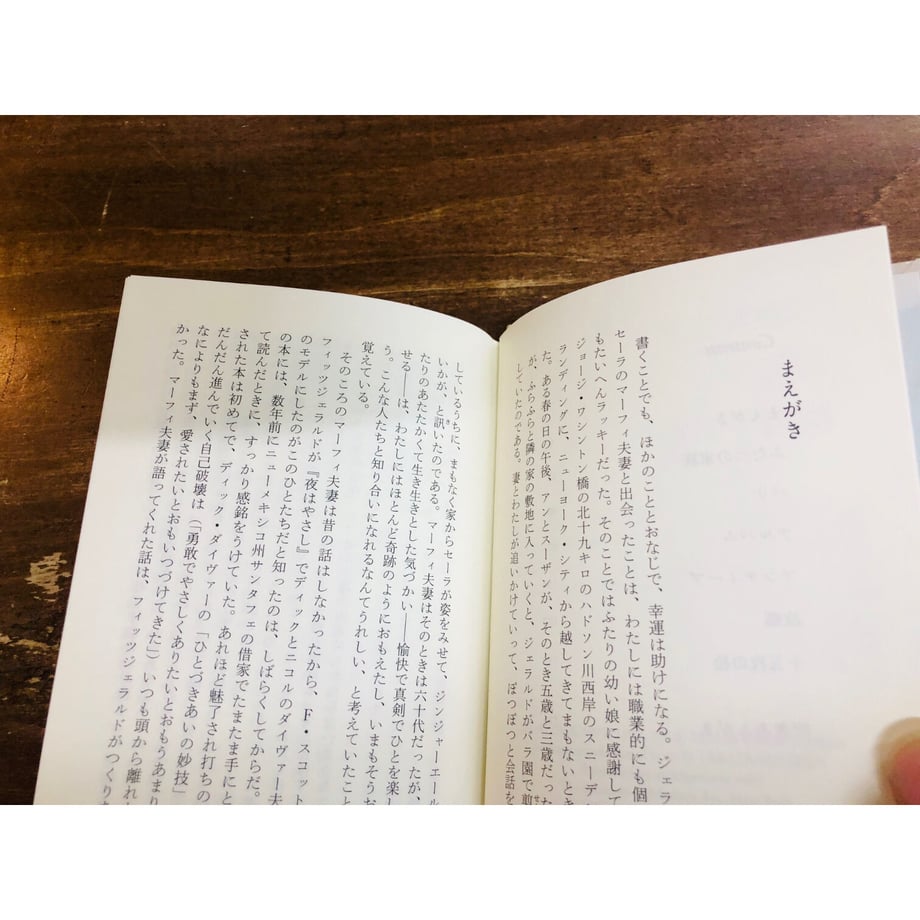 まえがき
書くことでも、ほかのこととおなじで、幸運は助けになる。ジェラ
セーラのマーフィ夫妻と出会ったことは、わたしには職業的にも個
もたいへんラッキーだった。そのことではふたりの幼い娘に感謝して
ジョージ・ワシントン橋の北十九キロのハドソン川西岸のスニーデ
ランディングに、ニューヨーク・シティから越してきてまもないとき
た。ある春の日の午後、アンとスーザンが、そのとき五歳と三歳だった
が、ふらふらと隣の家の敷地に入っていくと、ジェラルドがバラ園で剪
していたのである。妻とわたしが追いかけていって、ぽつぽつと会話を
しているうちに、まもなく家からセーラが姿をみせて、ジンジャーエール
いかが、と訊いたのである。マーフィ夫妻はそのときは六十代だったが、
たりのあたたかくて生き生きとした気づかい――愉快で真剣でひとを楽し
せる――は、わたしにはほとんど奇跡のようにおもえたし、いまもそうお
う。こんな人たちと知り合いになれるなんてうれしい、と考えていたこと
覚えている。
そのころのマーフィ夫妻は昔の話はしなかったから、F・スコット
フィッツジェラルドが『夜はやさし』でディックとニコルのダイヴァー夫
のモデルにしたのがこのひとたちだと知ったのは、しばらくしてからだ。
の本には、数年前にニューメキシコ州サンタフェの借家でたまたま手にと
て読んだときに、すっかり感銘をうけていた。あれほど魅了され打ちの
された本は初めてで、ディック・ダイヴァーの「ひとづきあいの妙技」
だんだん進んでいく自己破壊は（「勇敢でやさしくありたいとおもうあまり
なによりもまず、愛されたいとおもいつづけてきた」）いつも頭から離れ
かった。マーフィ夫妻が語ってくれた話は、フィッツジェラルドがつくり